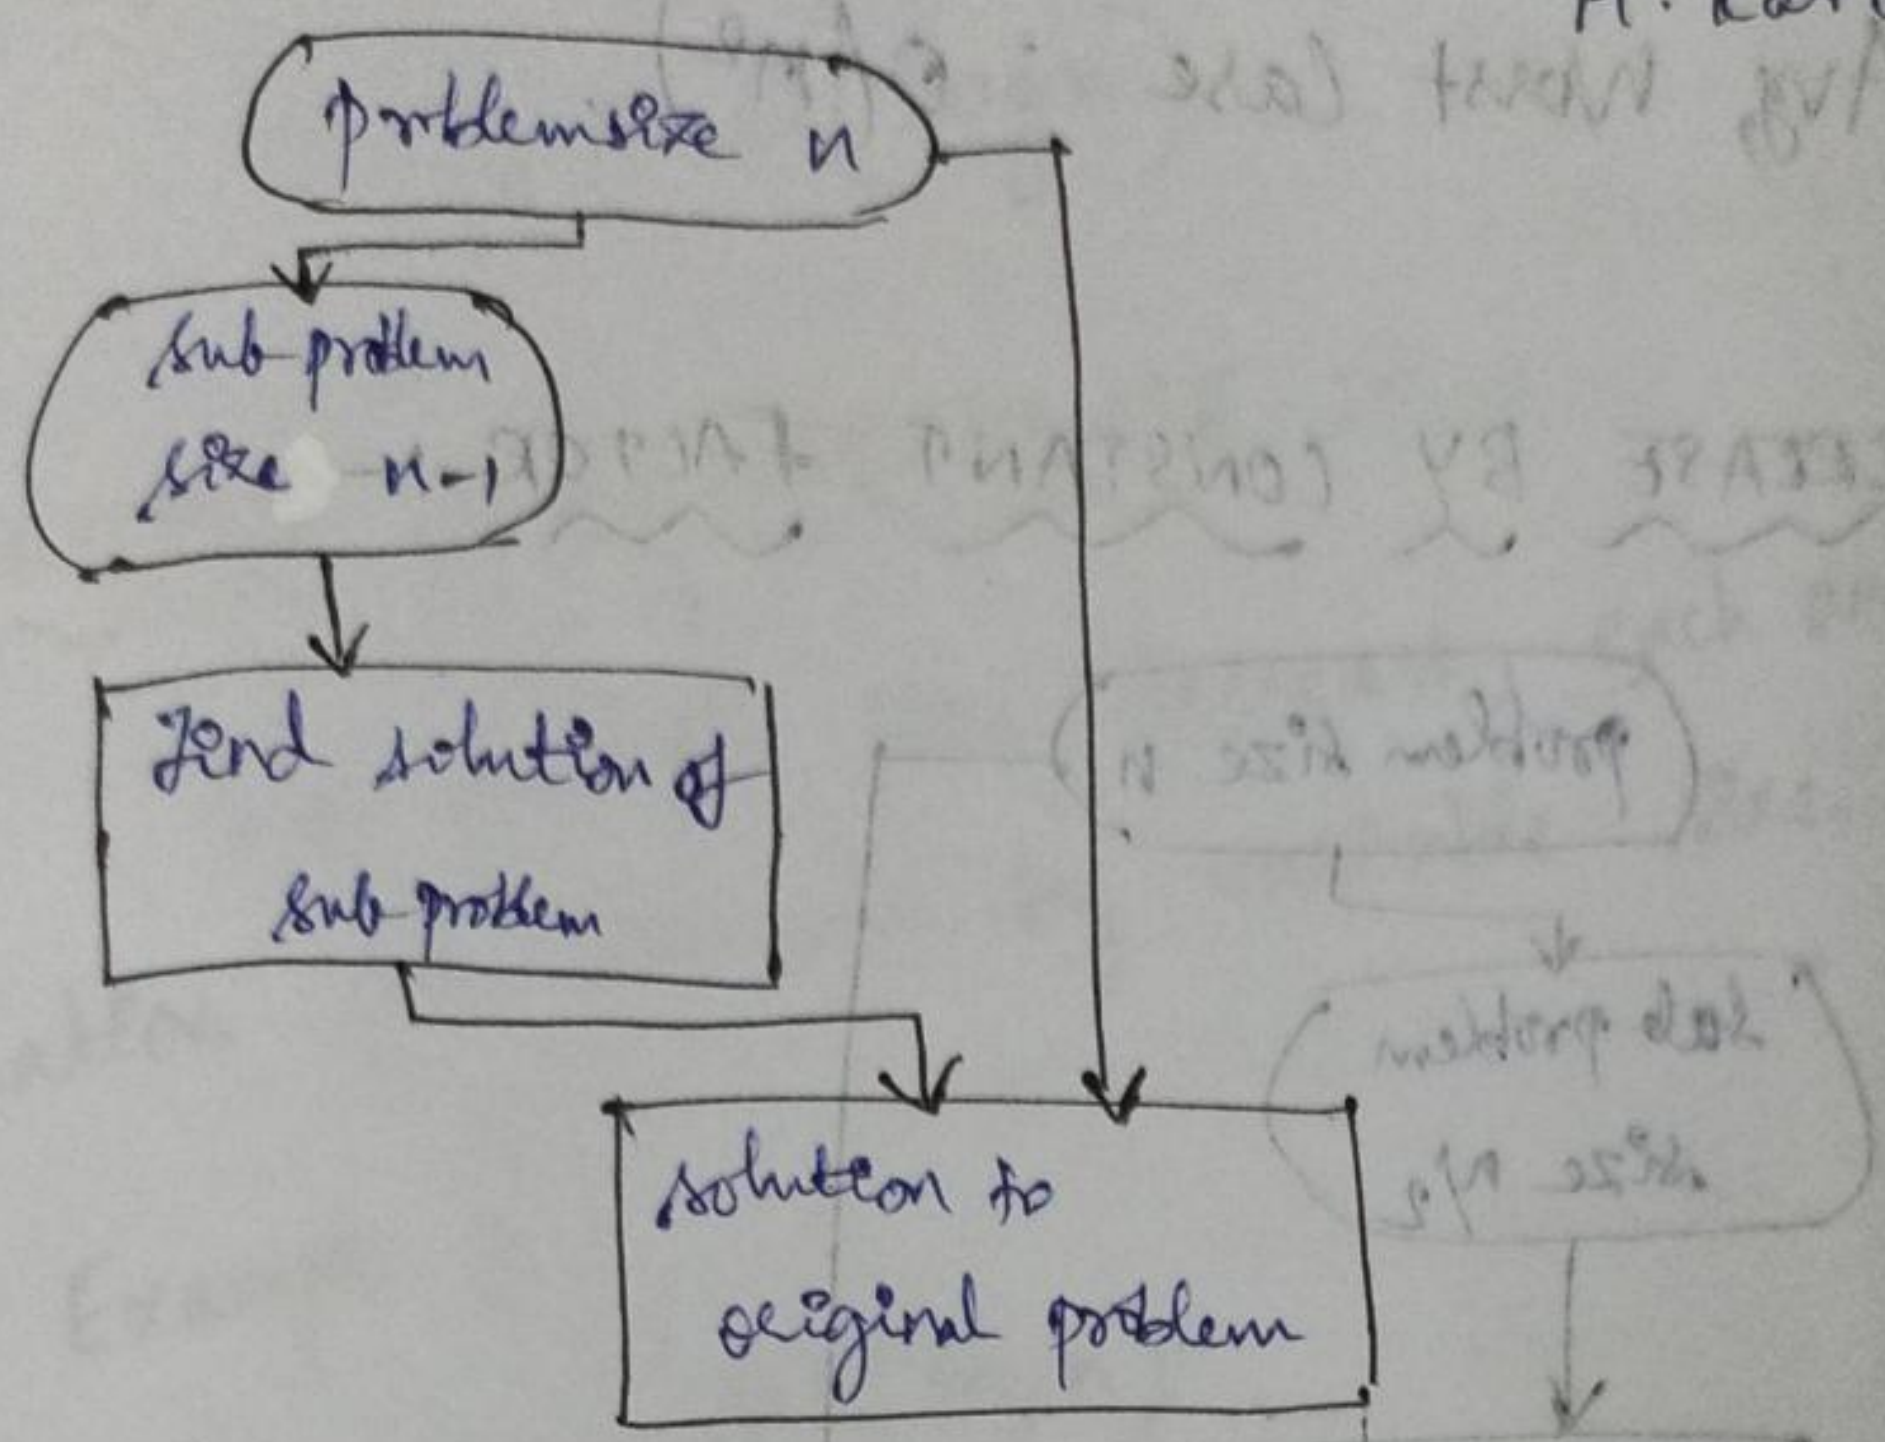 problemsize n
sub-problem
size n-1
Find solution of
sub-problem
solution to
original problem